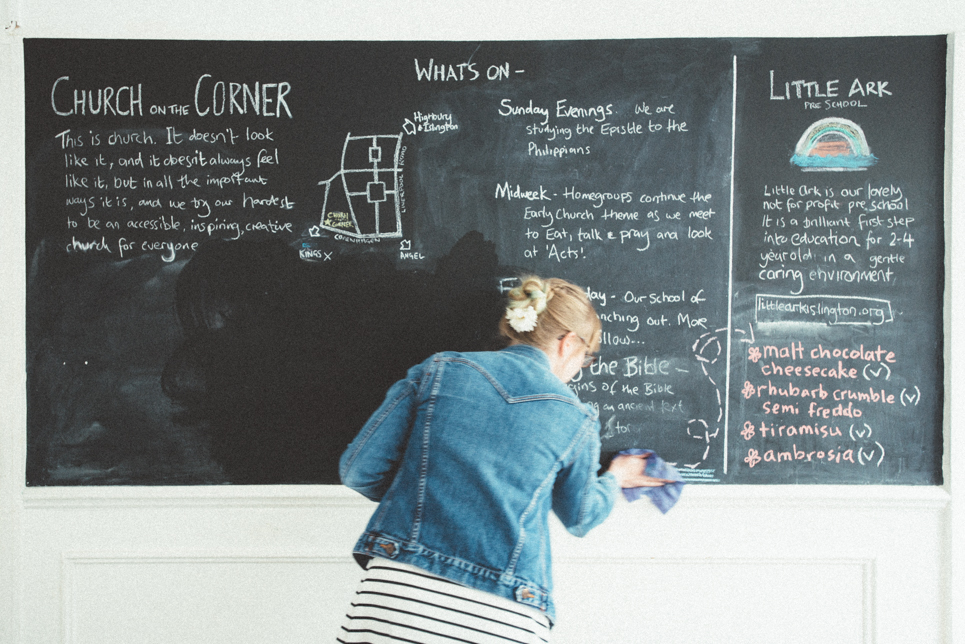 CHURCH ON THE CORNER
This is church. It doesn't look
like it, and it doesn't always feel
like it, but in all the important
ways it is, and we try our hardest
to be an accessible, inspiring, creative
church for everyone
Highbury
& Islington
LIVERPOOL ROAD
CHURCH
CORNER
COPENHAGEN
KINGS X
ANGEL
WHAT'S ON -
Sunday Evenings. We are
studying the Epistle to the
Philippians
Midweek - Homegroups continue the
Early Church theme as we meet
to Eat, talk & pray and look
at 'Acts'.
day - Our School of
nching out. More
llow...
the Bible -
gins of the Bible
an ancient text
tor
LITTLE ARK
PRE SCHOOL
Little Ark is our lovely
not for profit pre school
It is a brilliant first step
into education for 2-4
year olds in a gentle
caring environment.
littlearkislington.org
malt chocolate
cheesecake (v)
rhubarb crumble (v)
semi freddo
tiramisu (v)
ambrosia (v)